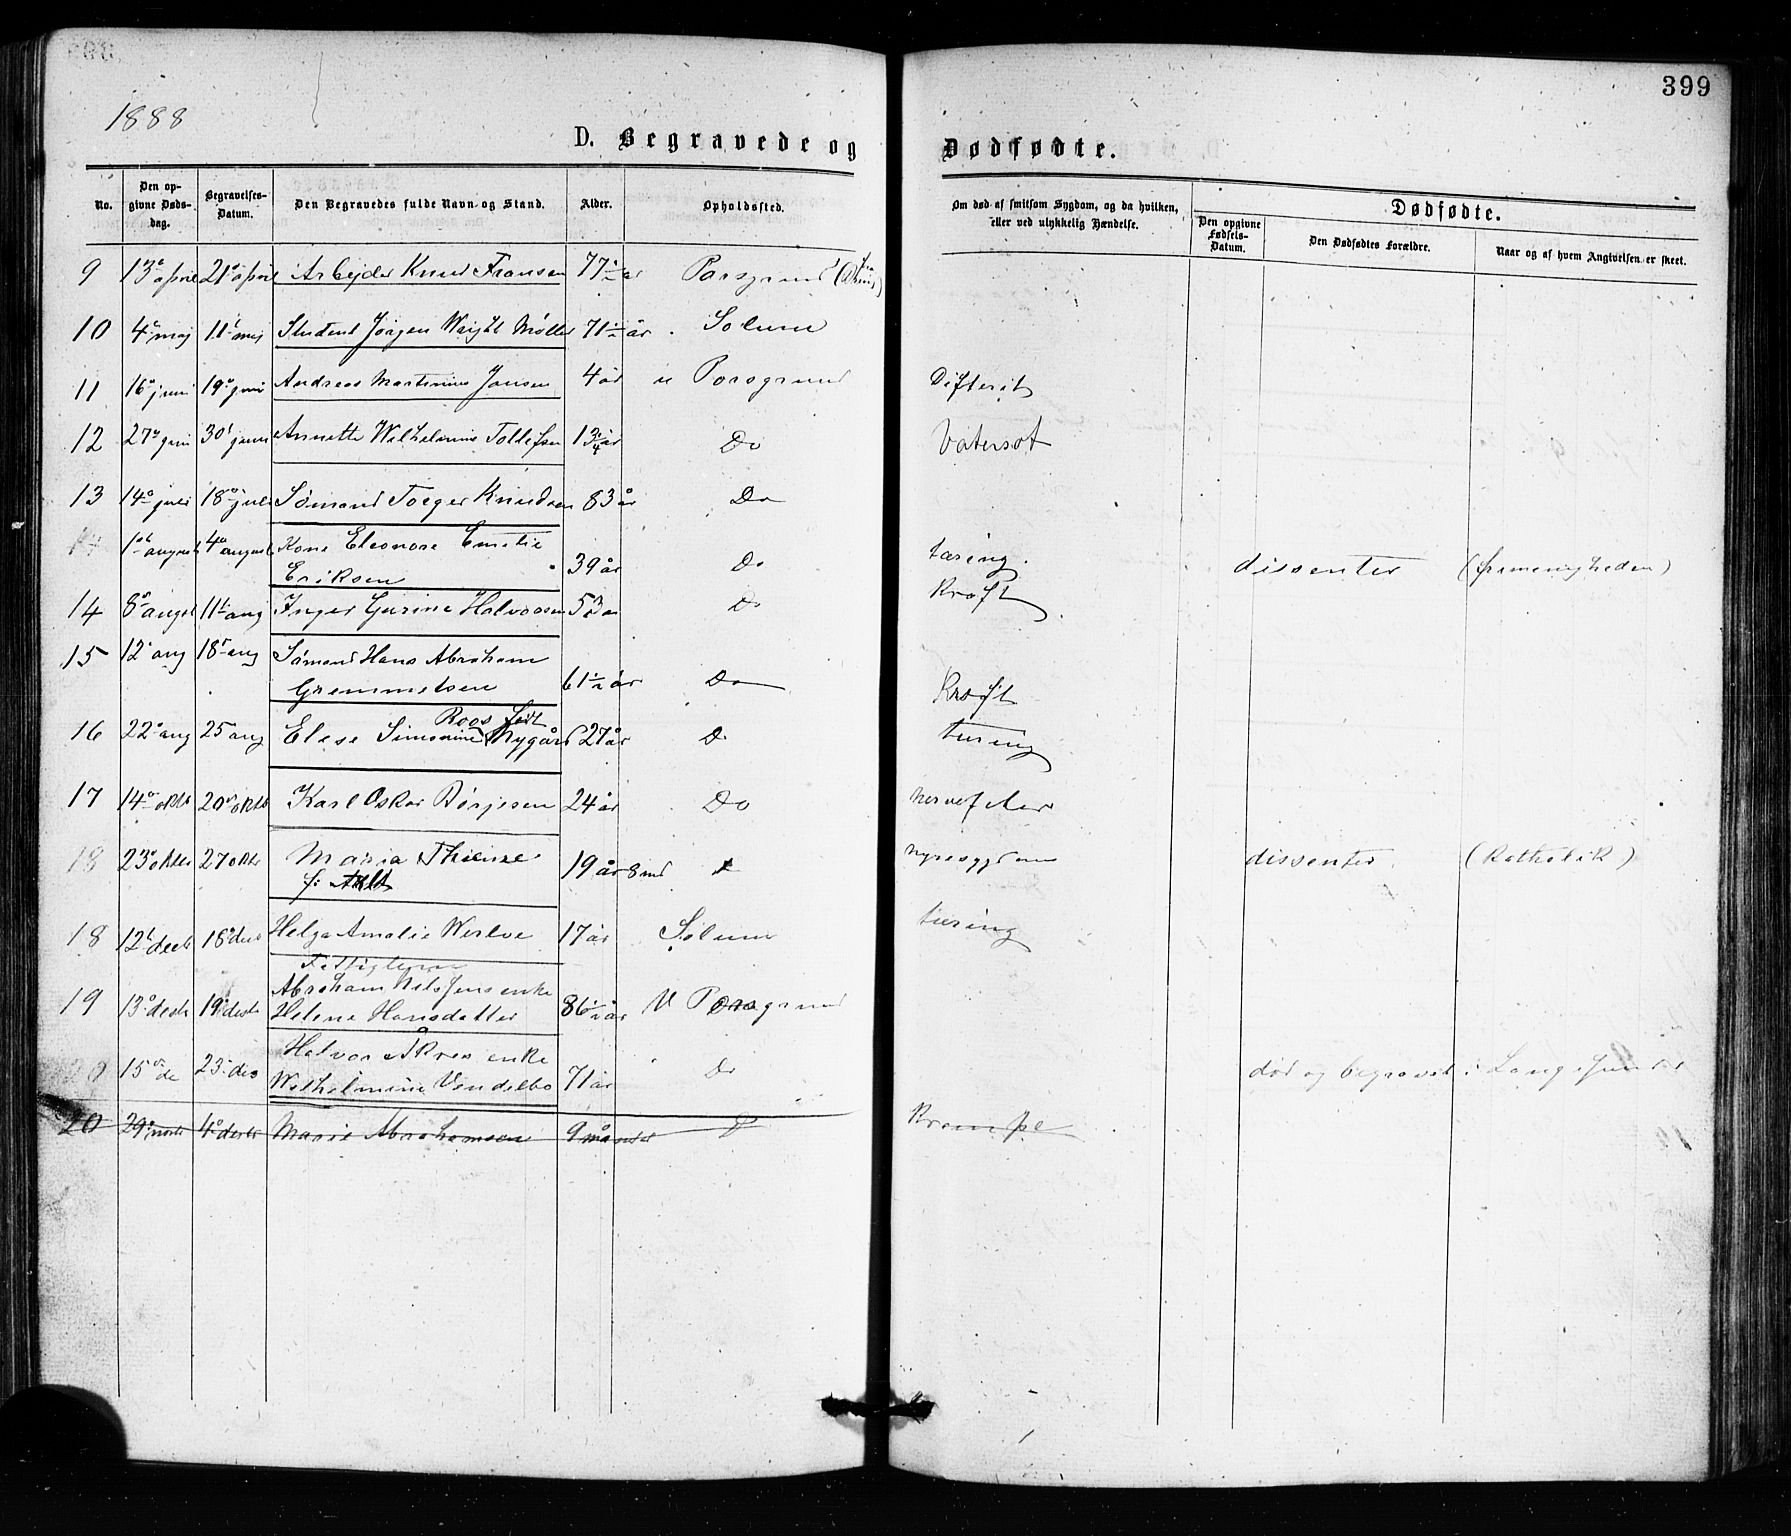 399
1888
D. Begravede og Dødfødte.
No.
Den opgivne Dødsdag.
Begravelses-Datum.
Den Begravedes fulde Navn og Stand.
Alder.
Opholdssted.
Om død af smitsom Sygdom, og da hvilken, eller ved ulykkelig Hændelse.
Dødfødte.
Den opgivne Fødsels-Datum.
Den Dødfødtes Forældre.
Naar og af hvem Angivelsen er skeet.
9 13de april 21de april Arbejder Knud Fransen 77 1/2 år Porsgrund
10 4de maj 11te maj Student Jörgen Wright Møller 71 1/2 år Solum
11 16de juni 19de juni Andreas Martinius Jansen 4 år Porsgrund Difterit
12 27de juni 30te juni Annette Wilhelmine Tollefsen 13/4 år Do Vatersot
13 14de juli 18de juli Sömand Torger Knudsen 83 år Do
14 1ste august 4de august Kone Eleonore Emelie
Eriksen 39 år Do tæring. dissenter (frimenigheden)
14 8de august 11te aug Inger Gurine Halvorsen Do Kroft
15 12te aug 18de aug Sømand Hans Abraham
Gremmetsen 61 1/2 år Do Kreft
Roos født
16 22de aug 25de aug Elise Simonine Nygård 27 år Do tæring
17 14de oktb 20de oktb Karl Oskar Börjesen 24 år Do nervefeber
18 23de oktbr 27 oktbr Maria Thieme
f: 19 år 8 md nyresygdom dissenter (Katholik)
18 12te decb 16de decb Helga Amalie Werlve 17 år Solum tæring
Fattiglem
Abraham Nils Jens enke
19 13de decb 19de decb Helene Hansdatter 86 1/2 år V Porsgrund
Halvor Åkres enke
20 15de de 23de dec Wilhelmine Vendelbo 71 år Do død og begravet i Langesund
20 29de novb 4de decbr Marie Abrahamsen 9 måneder D Krampe